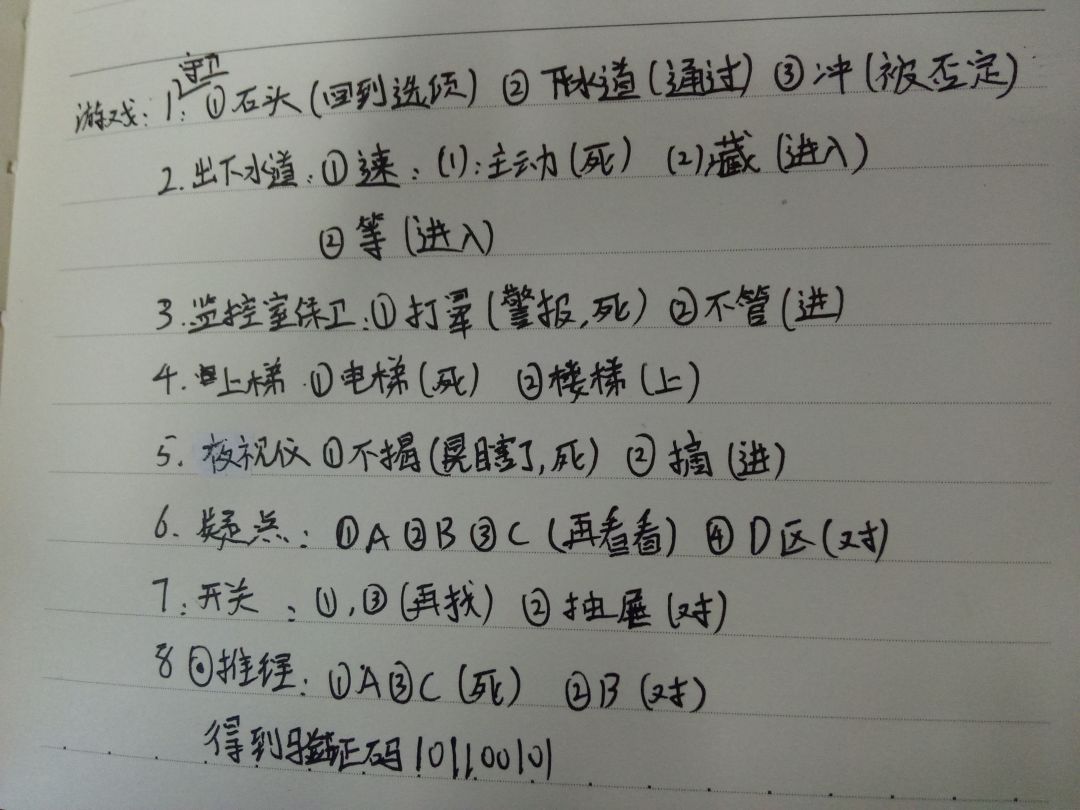 守卫
游戏: 1: ①石头(回到选项) ②下水道(通过) ③冲(被否定)
2. 出下水道: ①速: (1): 主动(死) (2)藏(进入)
②等(进入)
3. 监控室保卫: ①打晕(警报,死) ②不管(进)
4. 上梯 ①电梯(死) ②楼梯(上)
5. 夜视仪 ①不摘(晃瞎了,死) ②摘(进)
6. 疑点: ①A ②B ③C (再看看) ④D区(对)
7: 开关: ①,③(再找) ②抽屉(对)
8 推理: ①A③C(死) ②B(对)
得到验证码101100101